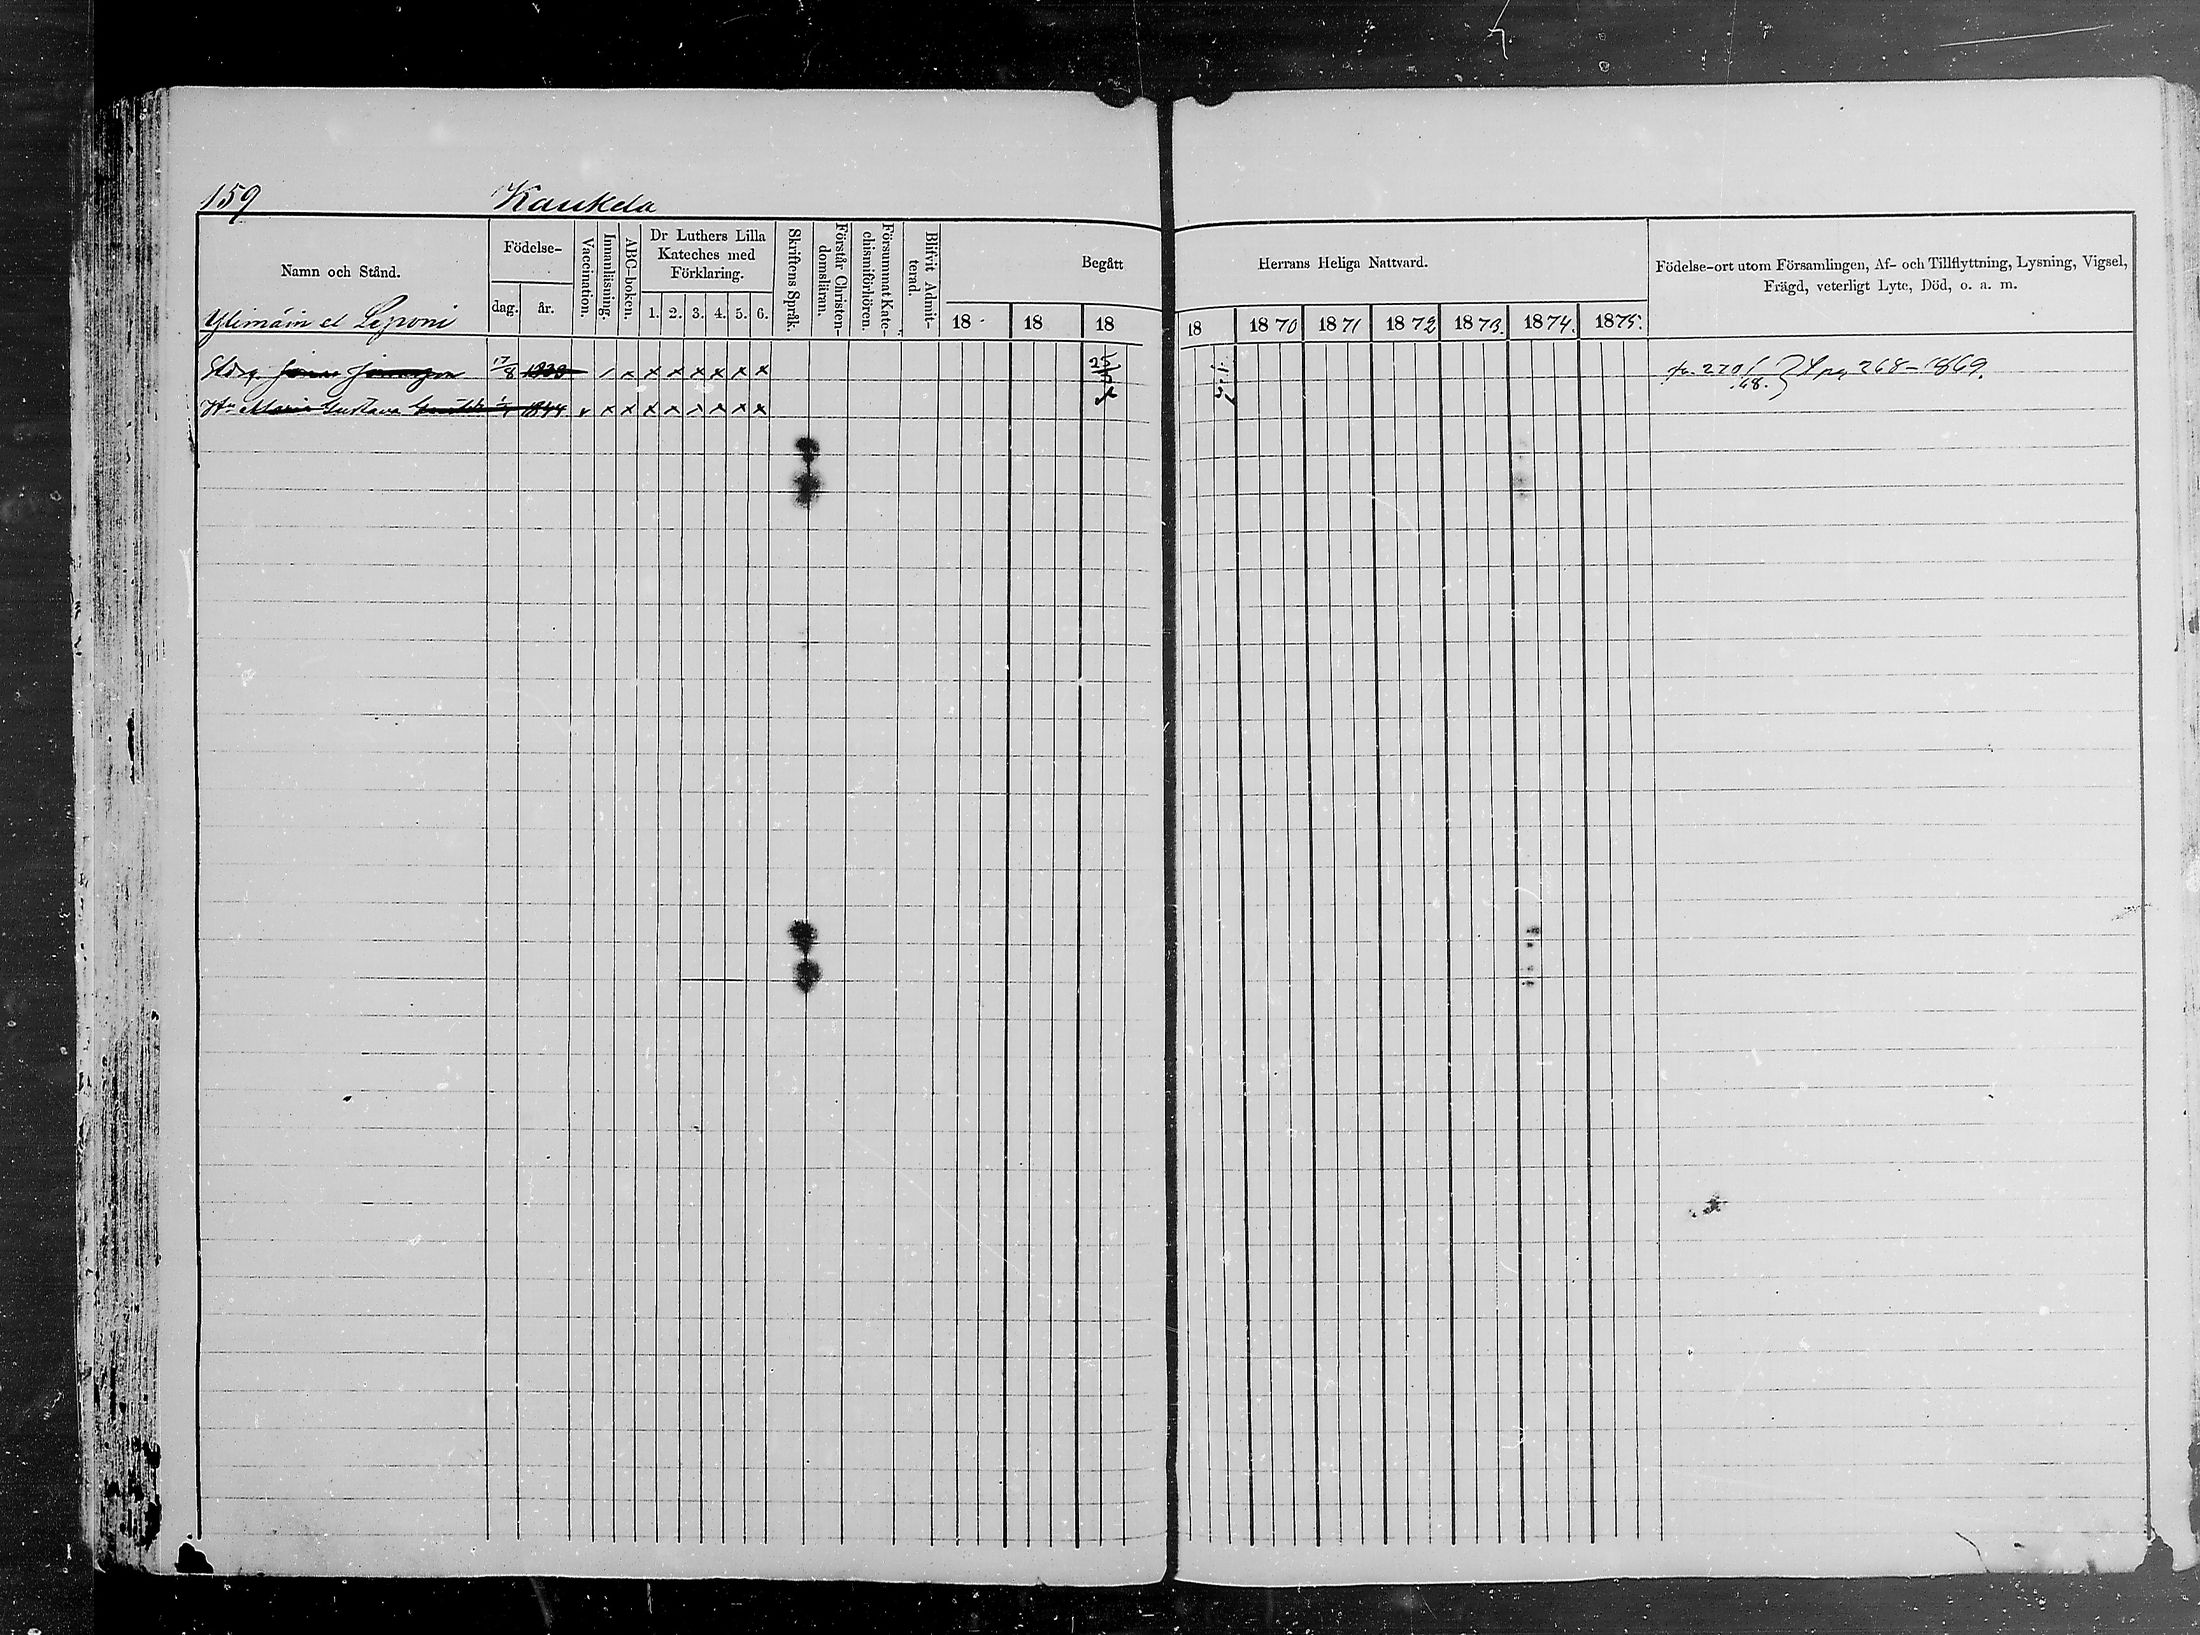 159 Kaukela
Namn och Stånd.
Födelse-
dag. år.
Vaccination.
Innanläsning.
ABC-boken.
Dr Luthers Lilla
Kateches med
Förklaring.
1. 2. 3. 4. 5. 6.
Skriftens Språk.
Förstår Christen-
domsläran.
Försummat Kate-
chismiförhören.
Blifvit Admit-
terad.
Begått
18 18 18
Herrans Heliga Nattvard.
18 1870 1871 1872 1873. 1874. 1875.
Födelse-ort utom Församlingen, Af- och Tillflyttning, Lysning, Vigsel,
Frägd, veterligt Lyte, Död, o. a. m.
Ylimäin el Leponi
17/8 1838 / x x x x x x x
270/68. } pag 268-1869.
Hu Maria Gustava 1844 v x x x x x x x x